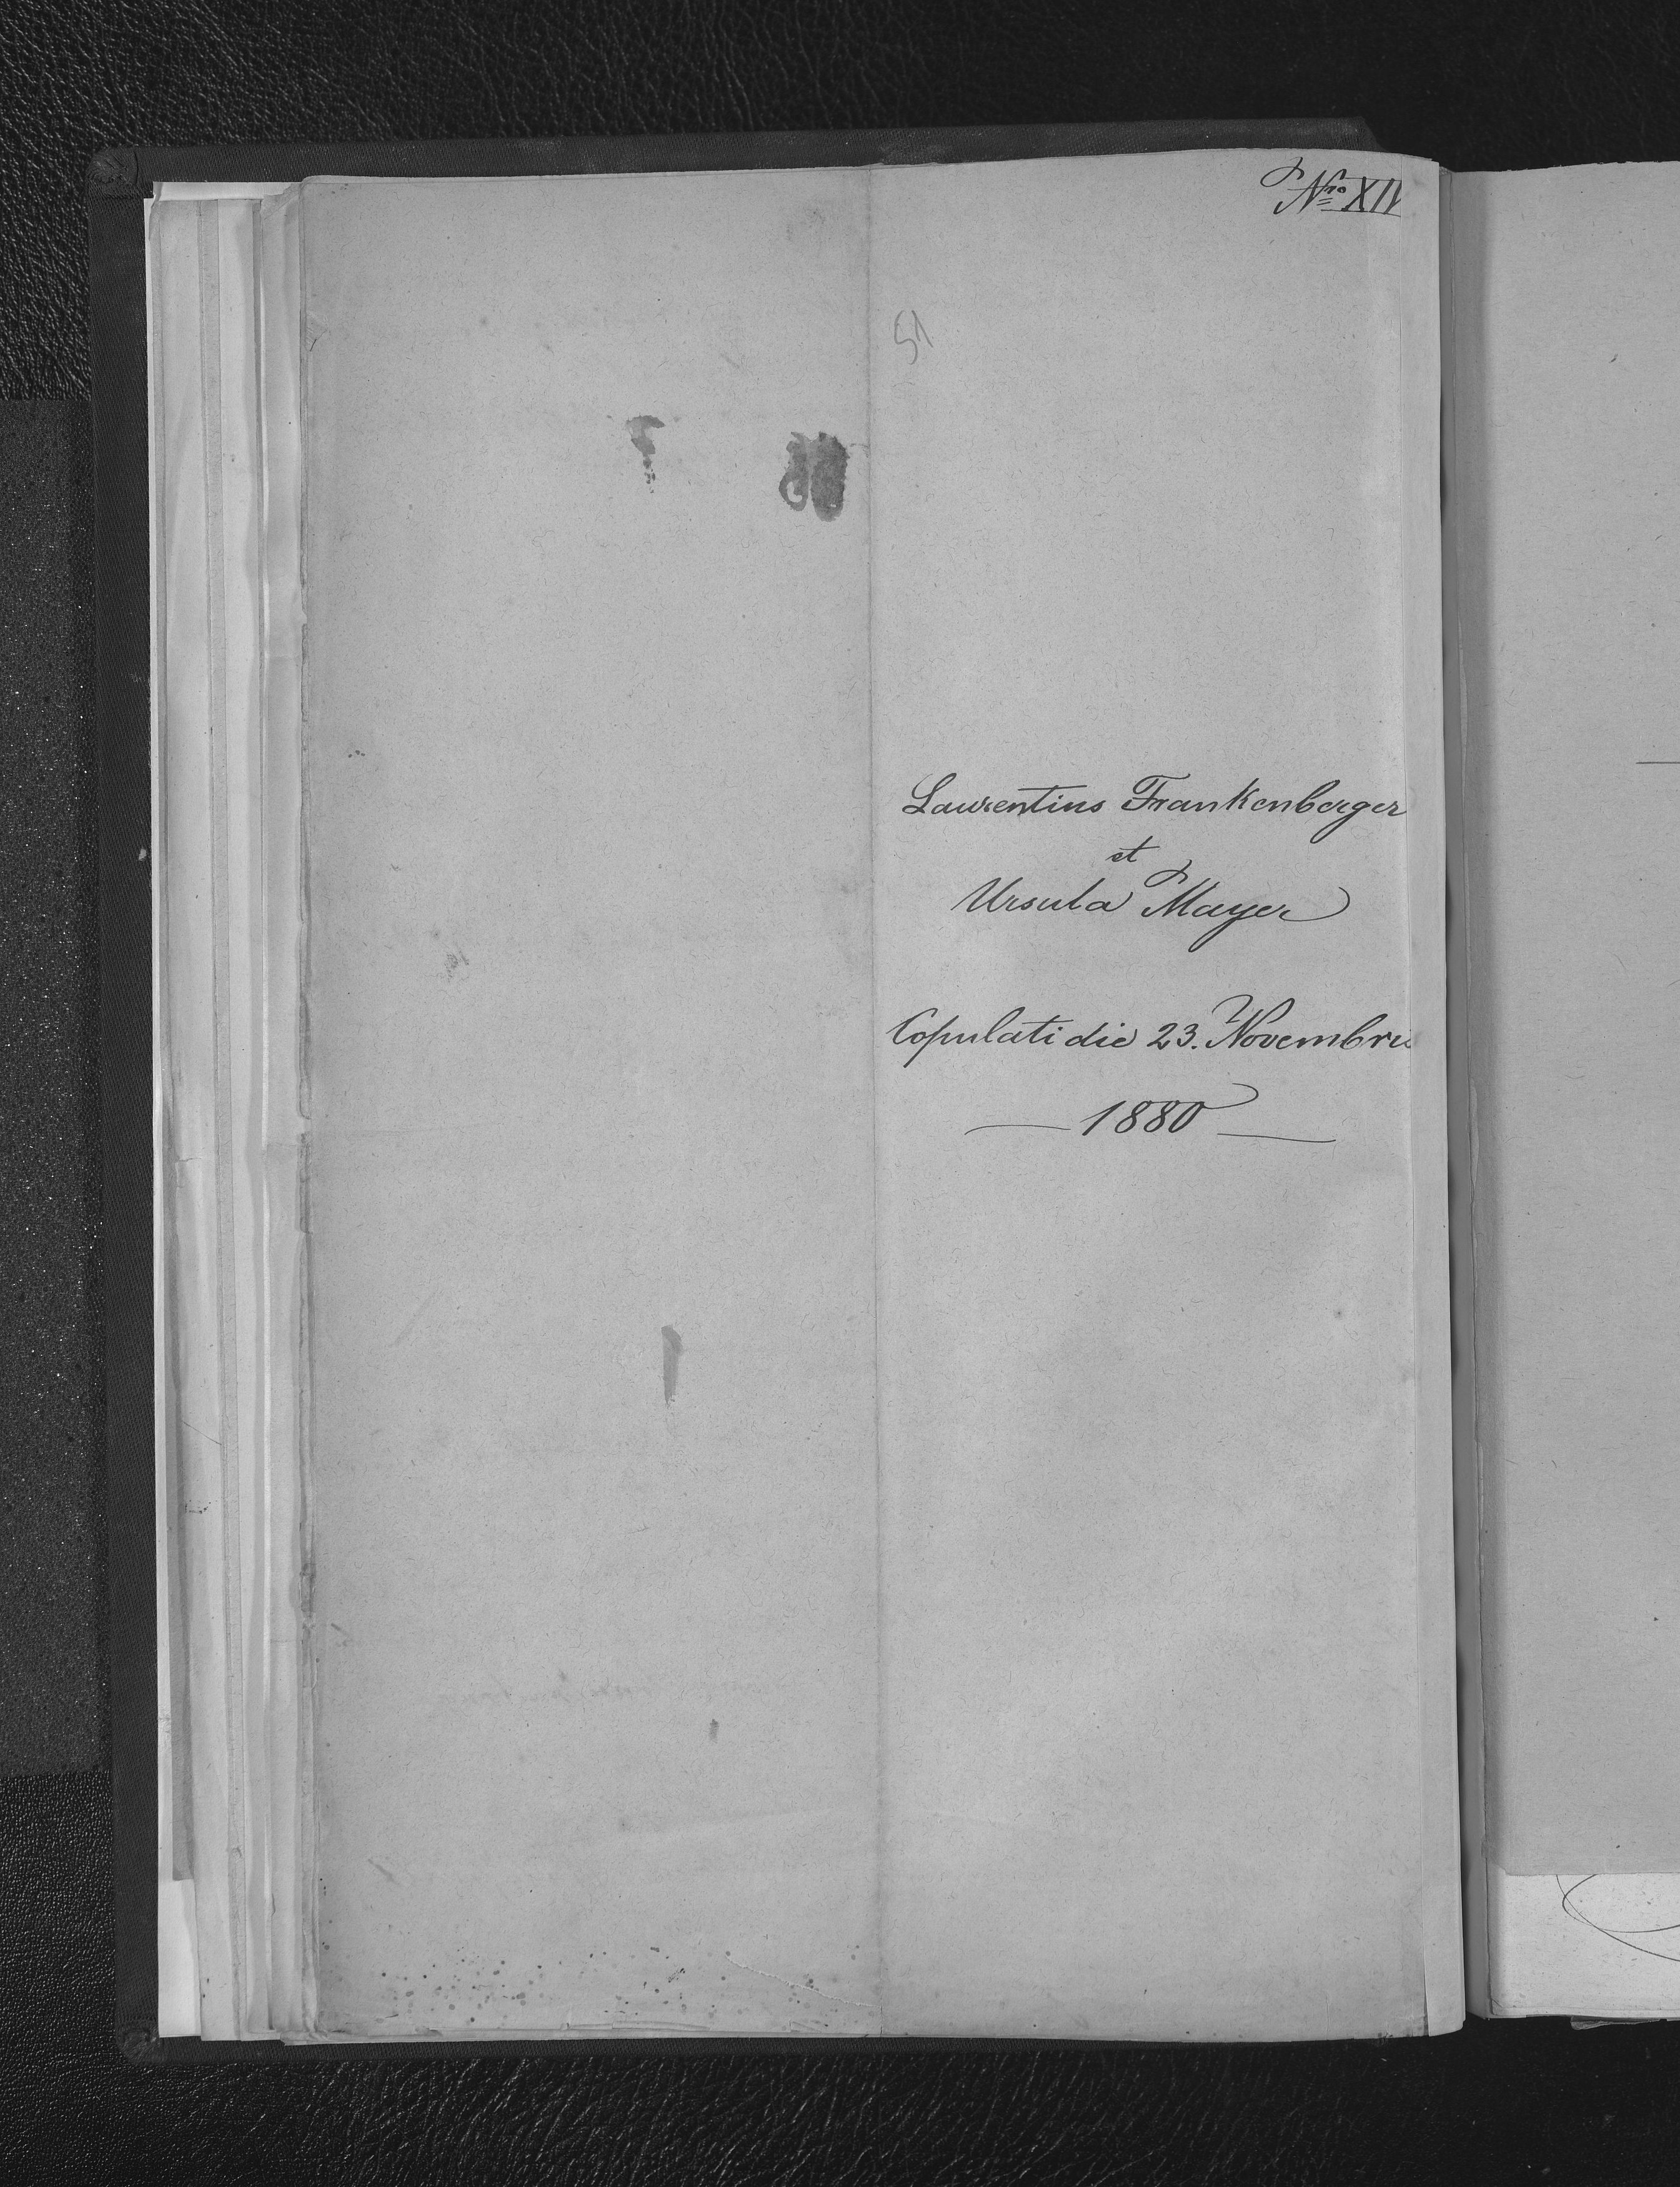 Nro XIV
51
Laurentius Frankenberger
et
Ursula Mayer
Copulati die 23. Novembris
1880